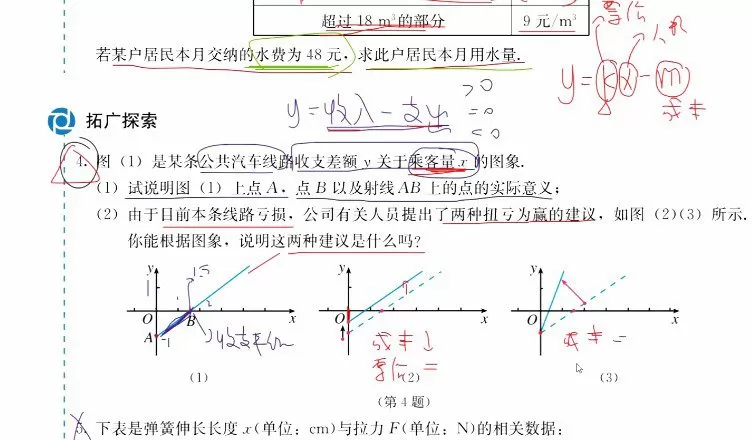 超过 18 m³的部分 9 元/m³
若某户居民本月交纳的水费为 48 元，求此户居民本月用水量.
票价
人数
y=kx-m
成本
拓广探索
y=收入-支出
>0
=0
<0
4. 图（1）是某条公共汽车线路收支差额 y 关于乘客量 x 的图象.
（1）试说明图（1）上点 A，点 B 以及射线 AB 上的点的实际意义；
（2）由于目前本条线路亏损，公司有关人员提出了两种扭亏为赢的建议，如图（2）（3）所示.
你能根据图象，说明这两种建议是什么吗？
y
1.5
1
2
O
B
x
A
-1
收支平衡
（1）
y
O
x
成本↓
票价=
（2）
y
O
x
成本=
（3）
（第 4 题）
5. 下表是弹簧伸长长度 x（单位：cm）与拉力 F（单位：N）的相关数据：